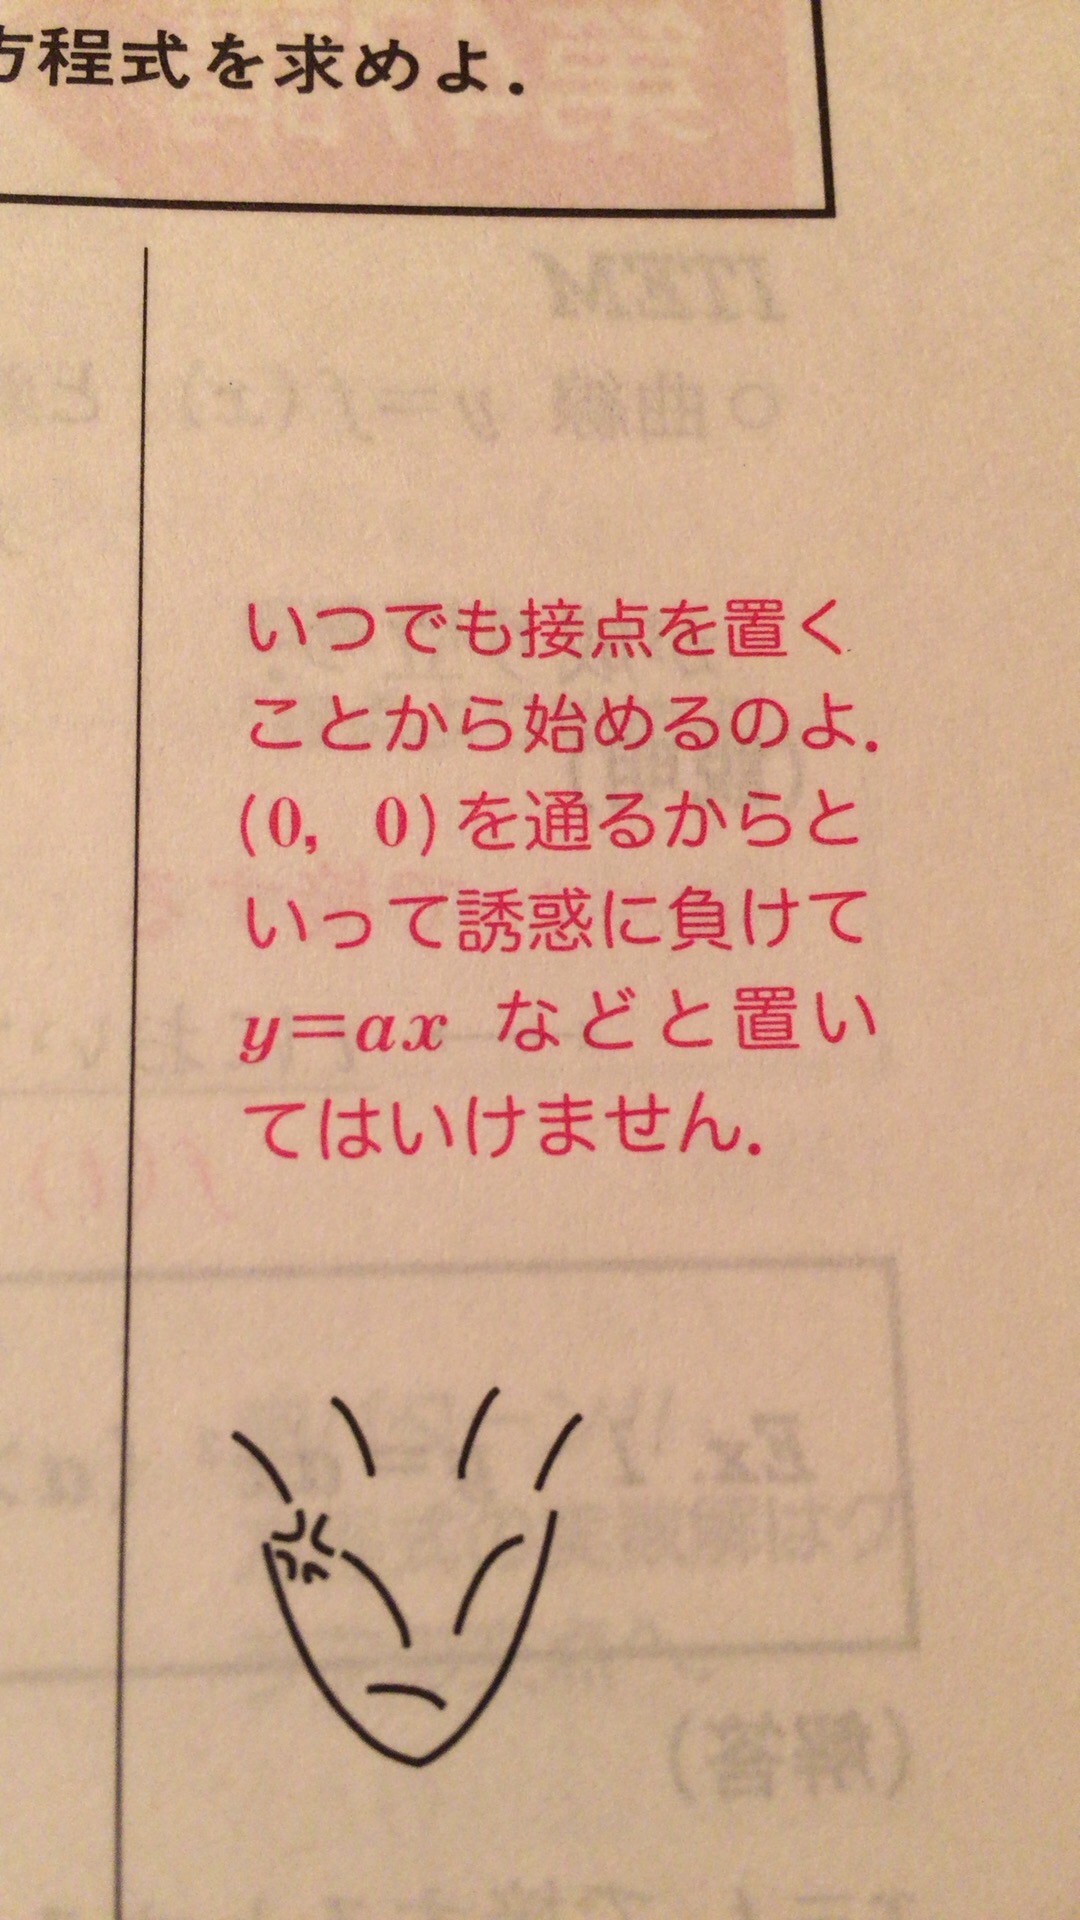 方程式を求めよ.
いつでも接点を置く
ことから始めるのよ.
(0, 0)を通るからと
いって誘惑に負けて
y=ax などと置い
てはいけません.